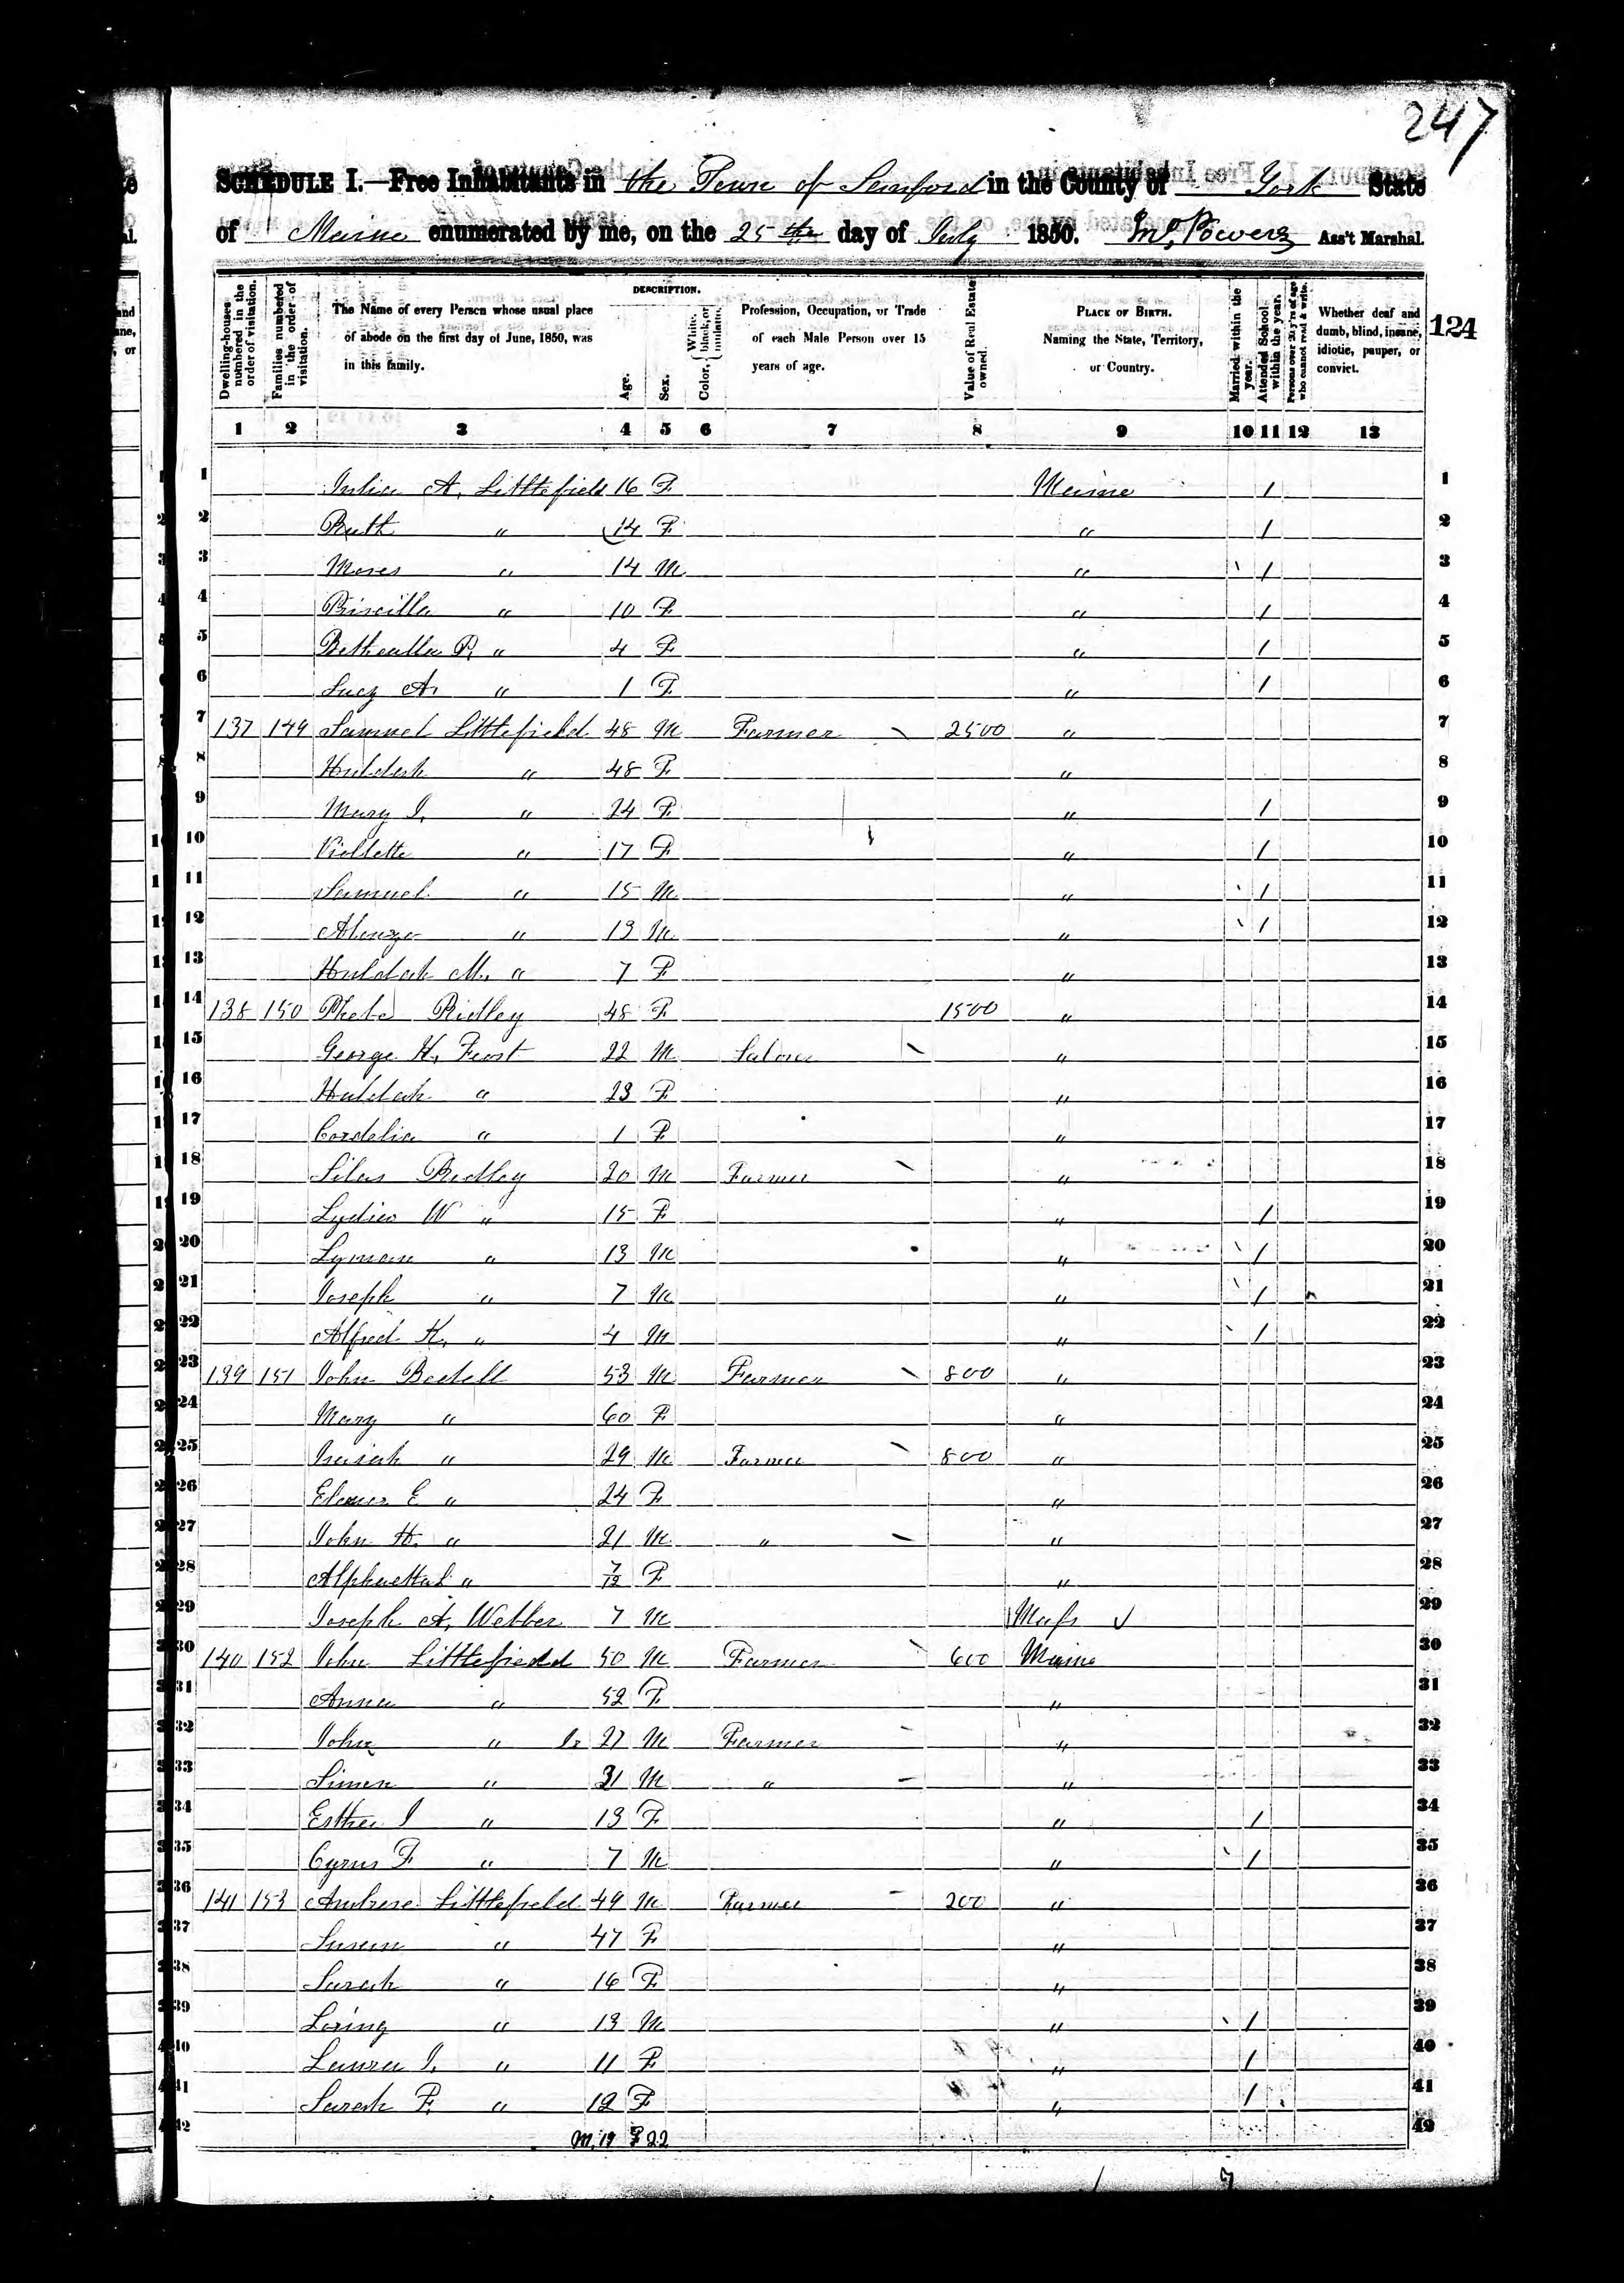 247
SCHEDULE I.—Free Inhabitants in the Town of Sanford in the County of York State
of Maine enumerated by me, on the 25th day of July 1850. Jno. Powers Ass't Marshal.
124
Dwelling-houses numbered in the order of visitation.
Families numbered in the order of visitation.
The Name of every Person whose usual place of abode on the first day of June, 1850, was in this family.
DESCRIPTION.
Age.
Sex.
Color, { White, black, or mulatto.
Profession, Occupation, or Trade of each Male Person over 15 years of age.
Value of Real Estate owned.
PLACE OF BIRTH. Naming the State, Territory, or Country.
Married within the year.
Attended School within the year.
Persons over 20 y'rs of age who cannot read & write.
Whether deaf and dumb, blind, insane, idiotic, pauper, or convict.
1 2 3 4 5 6 7 8 9 10 11 12 13
1 Julia A. Littlefield 16 F Maine / 1
2 Ruth " 14 F " / 2
3 Moses " 14 M " / 3
4 Priscilla " 10 F " / 4
5 P. " 4 F " / 5
6 Lucy A. " 1 F " / 6
7 137 149 Samuel Littlefield 48 M Farmer 2500 " 7
8 Huldah " 48 F " 8
9 Mary J. " 24 F " / 9
10 Violette " 17 F " / 10
11 Samuel " 15 M " / 11
12 Alonzo " 13 M " / 12
13 Huldah M. " 7 F " 13
14 138 150 Phebe Ridley 48 F 1500 " 14
15 George H. Frost 22 M " 15
16 Huldah " 23 F " 16
17 Cordelia " 1 F " 17
18 Silas Ridley 20 M Farmer " 18
19 Lydia W " 15 F " / 19
20 Lyman " 13 M " / 20
21 Joseph " 7 M " / 21
22 Alfred K. " 4 M " / 22
23 139 151 John Bedell 53 M Farmer 800 " 23
24 Mary " 60 F " 24
25 Isaiah " 29 M Farmer 800 " 25
26 E " 24 F " 26
27 John H. " 21 M " " 27
28 " 7/12 F " 28
29 Joseph A. Webber 7 M Mass 29
30 140 152 John Littlefield 50 M Farmer 600 Maine 30
31 Anna " 52 F " 31
32 John " Jr 27 M Farmer " 32
33 Simon " 21 M " " 33
34 Esther J " 13 F " / 34
35 Cyrus F " 7 M " / 35
36 141 153 Ambrose Littlefield 49 M Farmer 200 " 36
37 Susan " 47 F " 37
38 Sarah " 16 F " 38
39 Loring " 13 M " / 39
40 Laura J. " 11 F " / 40
41 Sarah F. " 12 F " / 41
42 M. 19 F 22 42